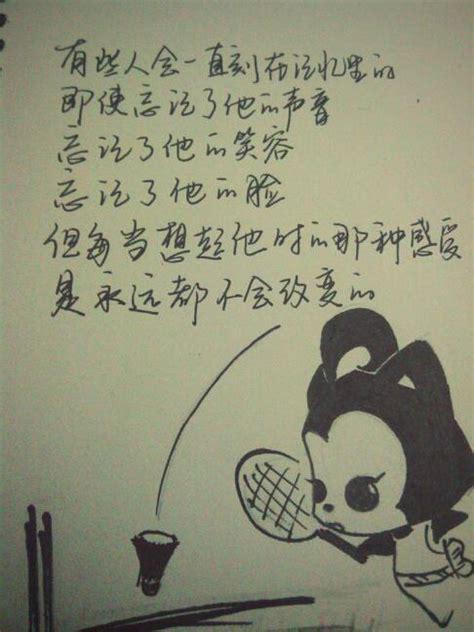 有些人会一直刻在记忆里的
即使忘记了他的声音
忘记了他的笑容
忘记了他的脸
但每当想起他时的那种感受
是永远都不会改变的